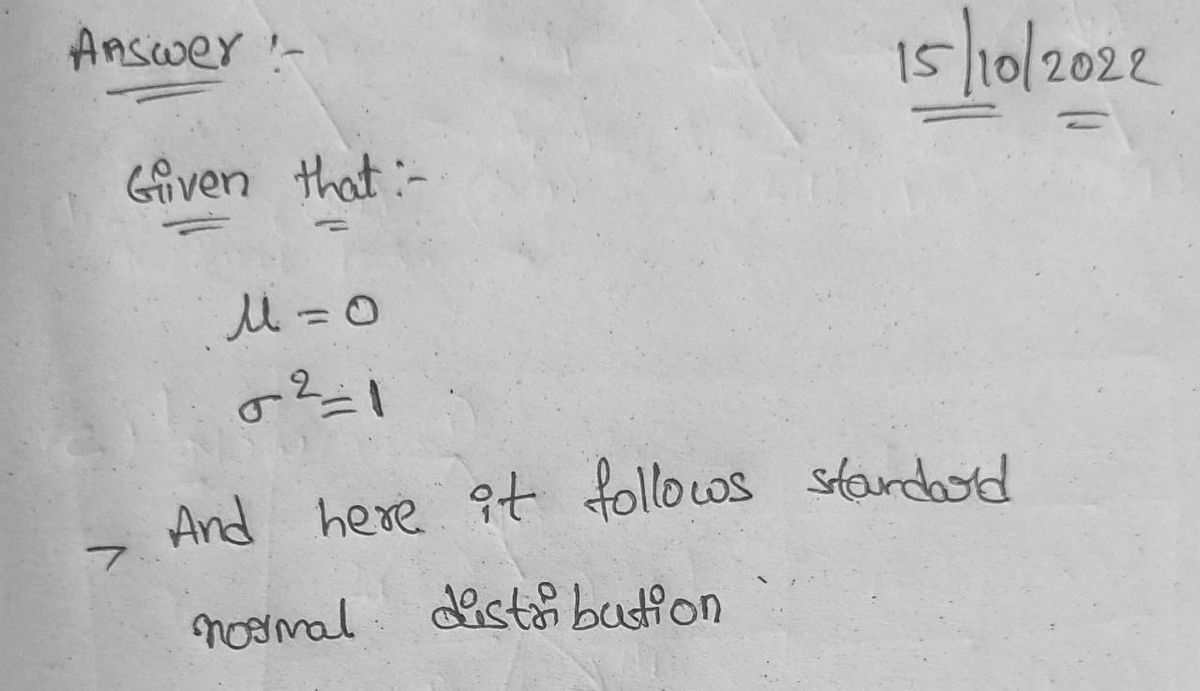 Answer :-
15/10/2022
Given that :-
μ = 0
σ² = 1
→ And here it follows standard
normal distribution